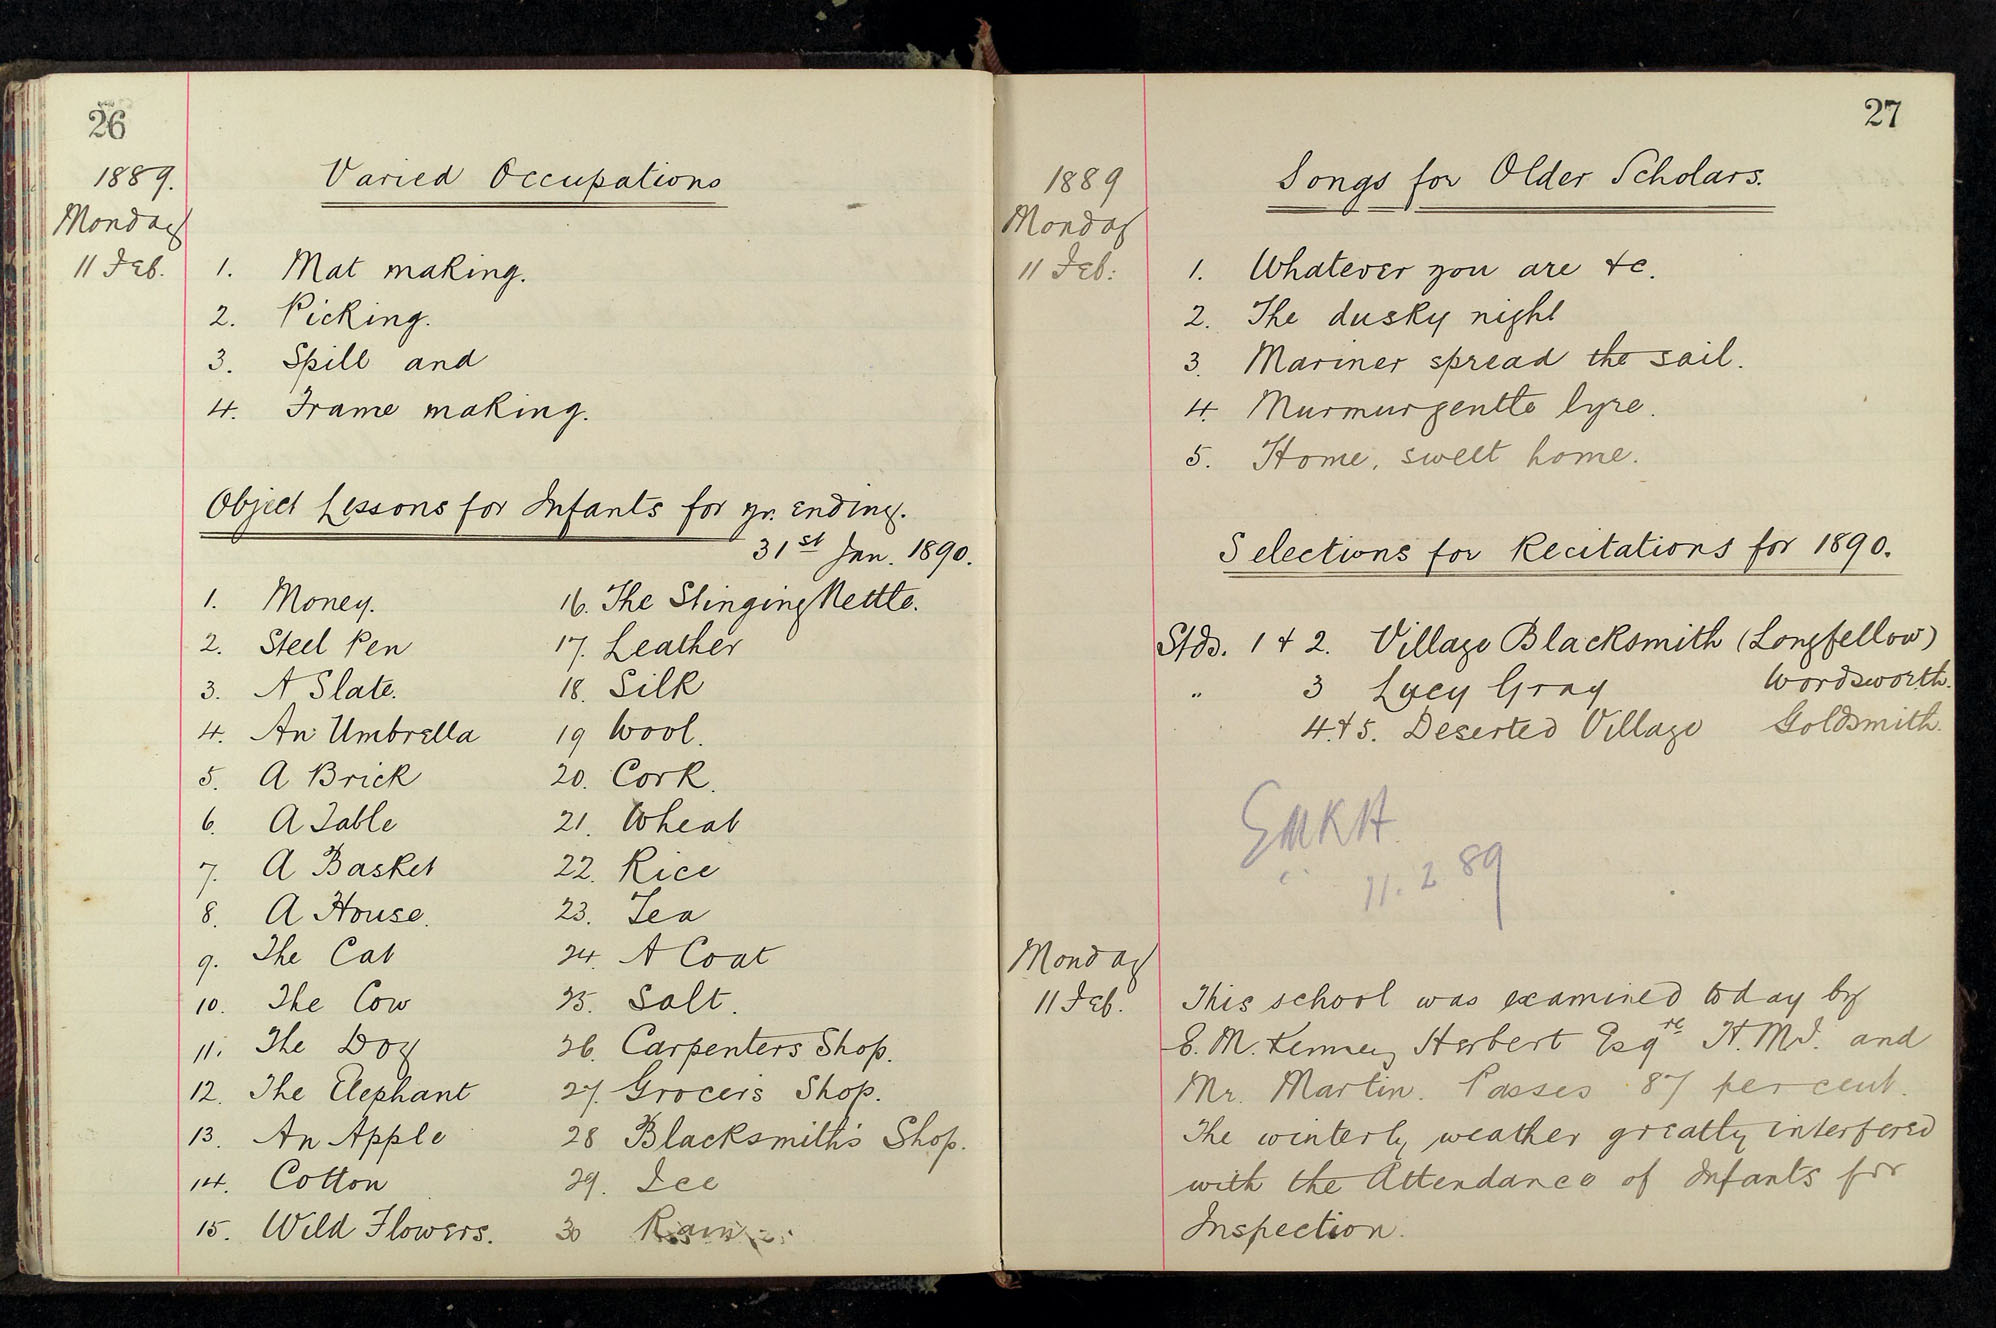 26
1889.
Monday
11 Feb.
Varied Occupations
1. Mat making.
2. Picking.
3. Spill and
4. Frame making.
Object Lessons for Infants for yr. ending.
31st Jan. 1890.
1. Money.
2. Steel Pen
3. A Slate.
4. An Umbrella
5. A Brick
6. A Table
7. A Basket
8. A House.
9. The Cat
10. The Cow
11. The Dog
12. The Elephant
13. An Apple
14. Cotton
15. Wild Flowers.
16. The Stinging Nettle.
17. Leather
18. Silk
19 Wool.
20. Cork.
21. Wheat
22. Rice
23. Tea
24. A Coat
25. Salt.
26. Carpenters Shop.
27. Grocer's Shop.
28 Blacksmith's Shop.
29. Ice
30 Rain
27
1889
Monday
11 Feb:
Songs for Older Scholars.
1. Whatever you are &c.
2. The dusky night
3. Mariner spread the sail.
4. Murmur gentle lyre.
5. Home, sweet home.
Selections for Recitations for 1890.
Stds. 1 & 2. Village Blacksmith (Longfellow)
" 3 Lucy Gray Wordsworth.
4 & 5. Deserted Village Goldsmith.
EMKH.
11. 2 89
Monday
11 Feb.
This school was examined today by
E. M. Kenney Herbert Esqre H.M.I. and
Mr. Martin. Passes 87 per cent.
The winterly weather greatly interfered
with the Attendance of Infants for
Inspection.